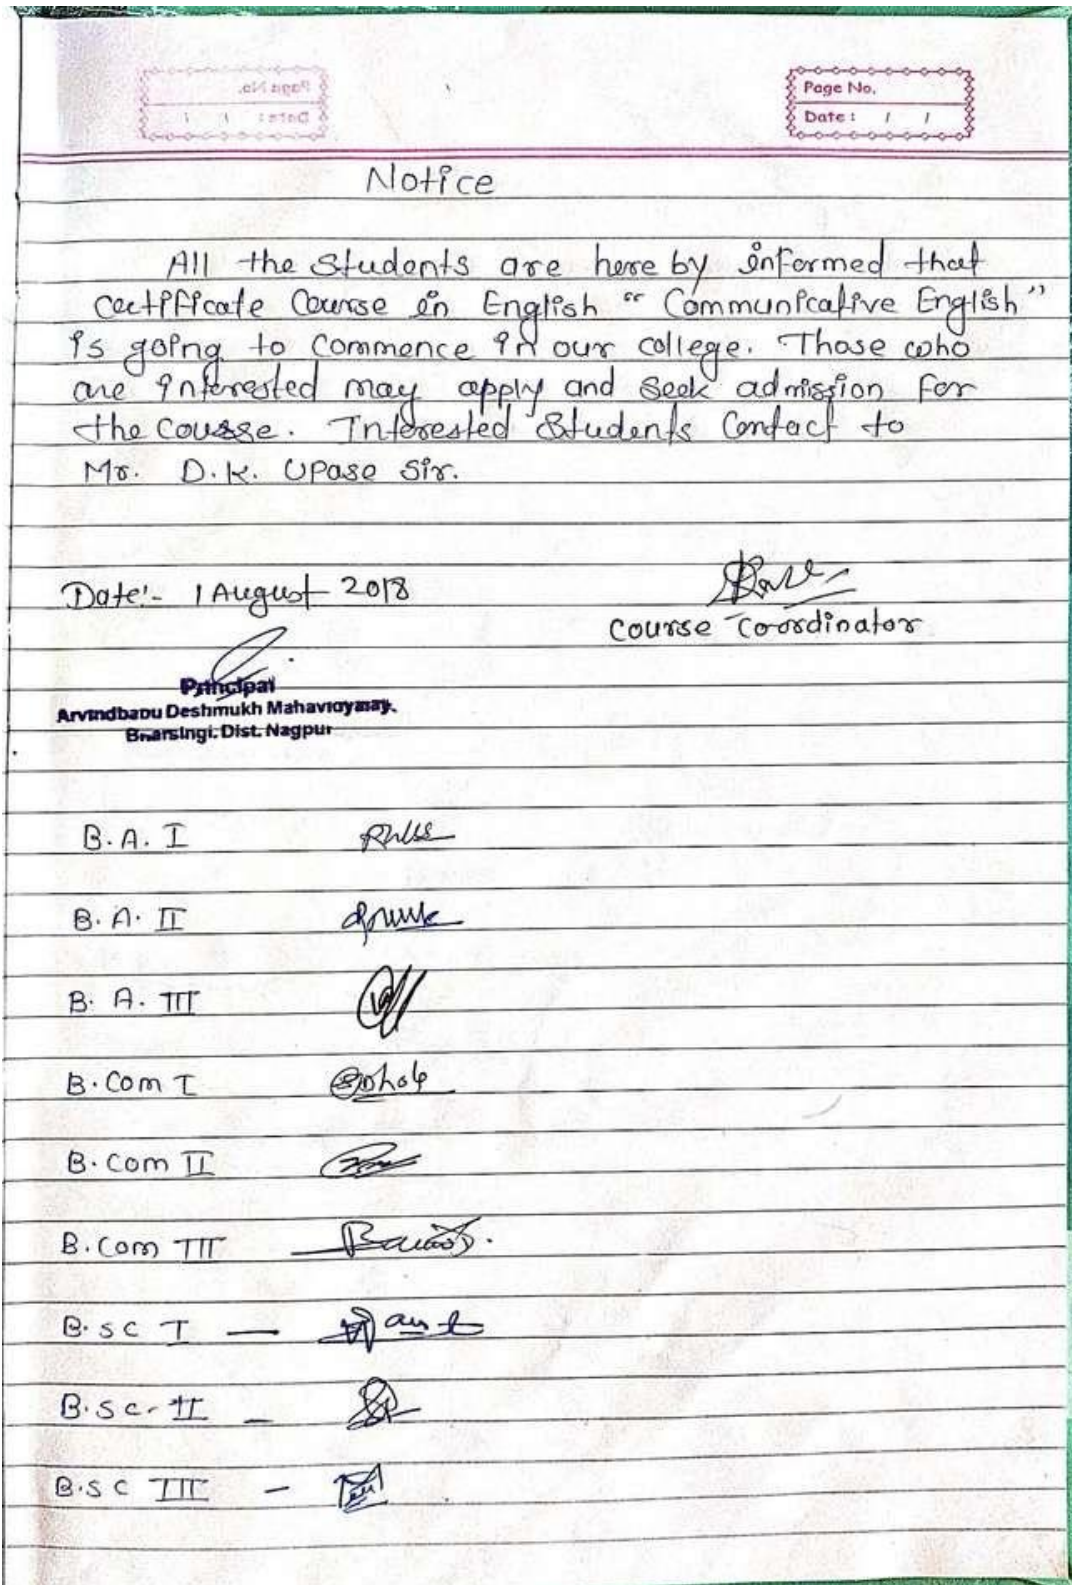 Page No.
Date : / /
Notice
All the Students are here by informed that
certificate Course in English “ Communicative English”
is going to Commence in our college. Those who
are interested may apply and Seek admission for
the Course. Interested Students Contact to
Mr. D.K. Upase Sir.
Date:- 1 August 2018
Course Coordinator
Principal
Arvindbabu Deshmukh Mahavidyalay,
Bharsingi. Dist. Nagpur
B.A. I
B.A. II
B.A. III
B.Com I
B.Com II
B.Com III
B.SC I —
B.SC. II –
B.SC III –